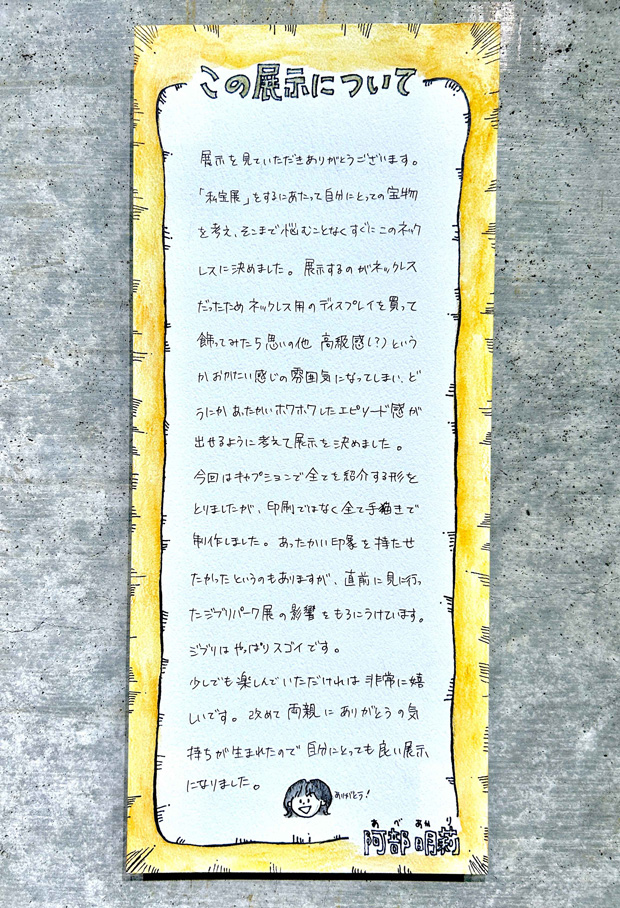 この展示について
展示を見ていただきありがとうございます。
「私宝展」をするにあたって自分にとっての宝物
を考え、そこまで悩むことなくすぐにこのネック
レスに決めました。展示するのがネックレス
だったためネックレス用のディスプレイを買って
飾ってみたら思いの他 高級感(?)という
かおかたい感じの雰囲気になってしまい、ど
うにかあったかいホワホワしたエピソード感が
出せるように考えて展示を決めました。
今回はキャプションで全てを紹介する形を
とりましたが、印刷ではなく全て手描きで
制作しました。あったかい印象を持たせ
たかったというのもありますが、直前に見に行っ
たジブリパーク展の影響をもろにうけています。
ジブリはやっぱりスゴイです。
少しでも楽しんでいただければ非常に嬉
しいです。改めて両親にありがとうの気
持ちが生まれたので自分にとっても良い展示
になりました。
ありがとう!
あべ あかり
阿部明莉